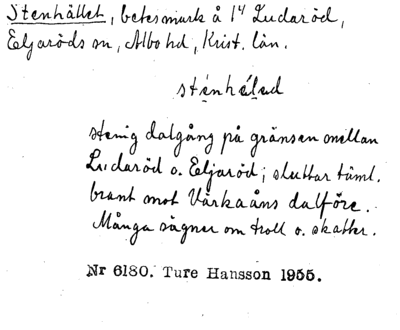 Stenhället, betesmark å 1⁴ Ludaröd,
Eljaröds sn, Albo hd, Krist. län.
sténhélud
stenig dalgång på gränsen mellan
Ludaröd o. Eljaröd; sluttar täml.
brant mot Verkaåns dalföre.
Många sägner om troll o. skatter.
Nr 6180. Ture Hansson 1955.